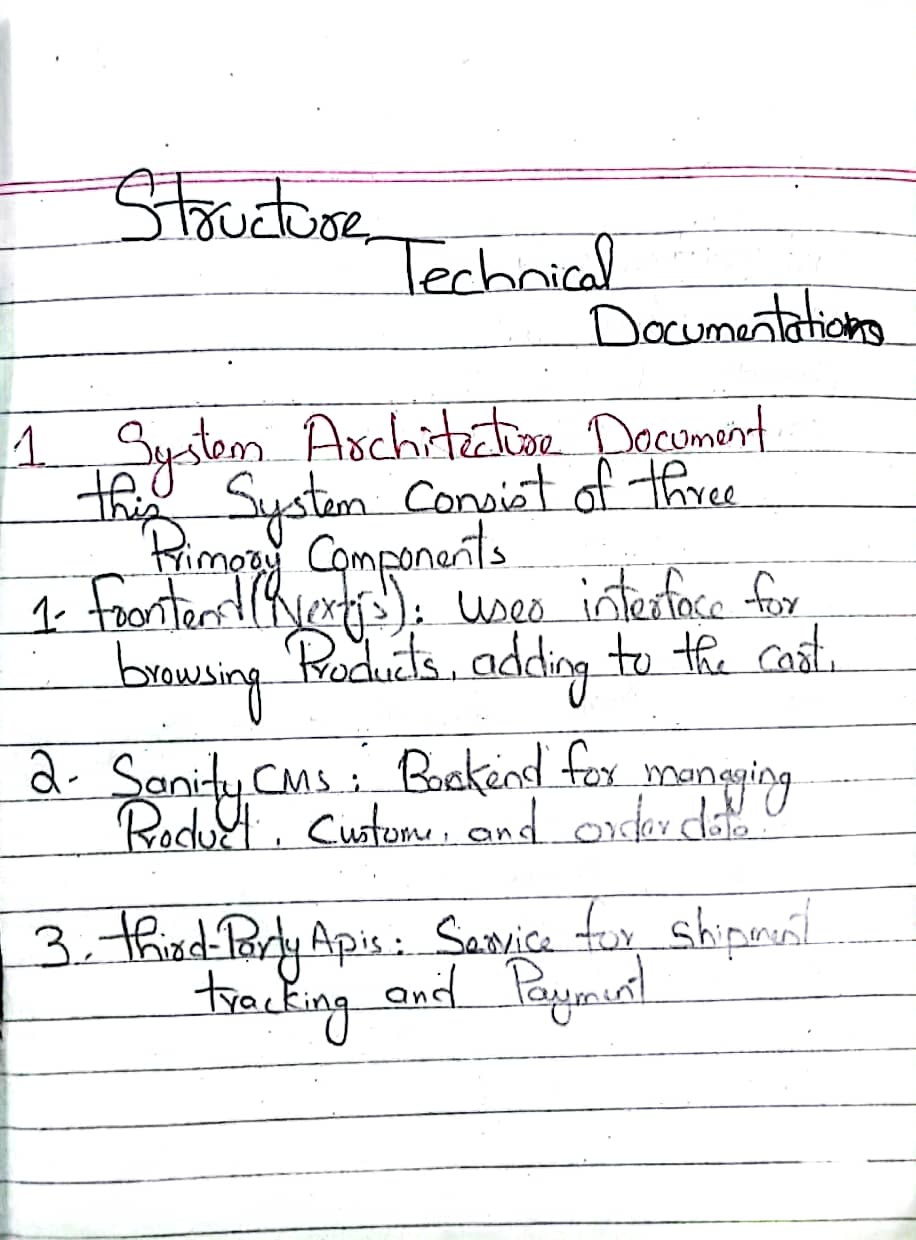 Structure
Technical
Documentations
1 System Architecture Document
this System Consist of three
Primary Components
1- Frontend (Nextjs): user interface for
browsing Products, adding to the cart.
2- Sanity CMS: Backend for managing
Product, Custome, and order data.
3. third-Party Apis: Service for shipment
tracking and Payment